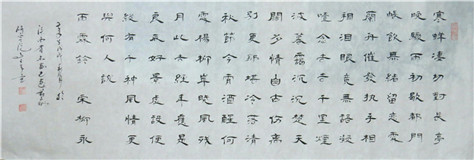 寒蟬淒切對長亭
晚驟雨初歇都門
帳飲無緒留戀處
蘭舟催發執手相
看淚眼竟無語凝
噎念去去千里煙
波暮靄沉沉楚天
闊多情自古傷離
別更那堪冷落清
秋節今宵酒醒何
處楊柳岸曉風殘
月此去經年應是
良辰好景虛設便
縱有千種風情更
與何人說
雨霖鈴 宋柳永